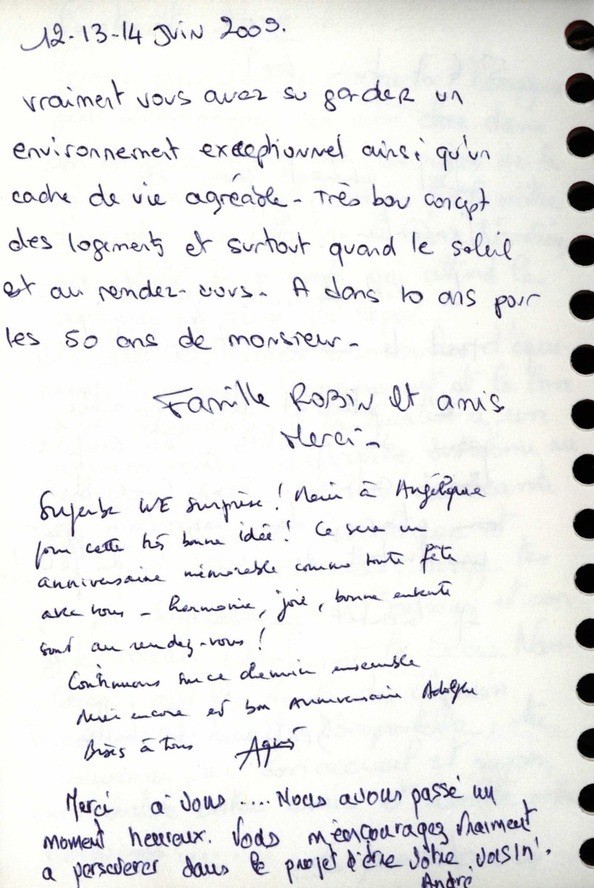 12-13-14 Juin 2009.
vraiment vous avez su garder un
environnement exceptionnel ainsi qu'un
cadre de vie agréable - Très bon concept
des logements et surtout quand le soleil
est au rendez-vous - A dans 10 ans pour
les 50 ans de monsieur -
Famille ROBIN et amis
Merci -
Superbe WE surprise ! Merci à Angélique
pour cette très bonne idée ! Ce sera un
anniversaire mémorable comme toute fête
avec vous - harmonie, joie, bonne entente
sont au rendez-vous !
Continuons sur ce chemin ensemble
Merci encore et bon anniversaire Adolphe
Bises à tous Agnès
Merci à vous .... Nous avons passé un
moment heureux. Vous m'encouragez vraiment
a perseverer dans le projet d'être vôtre voisin !
André